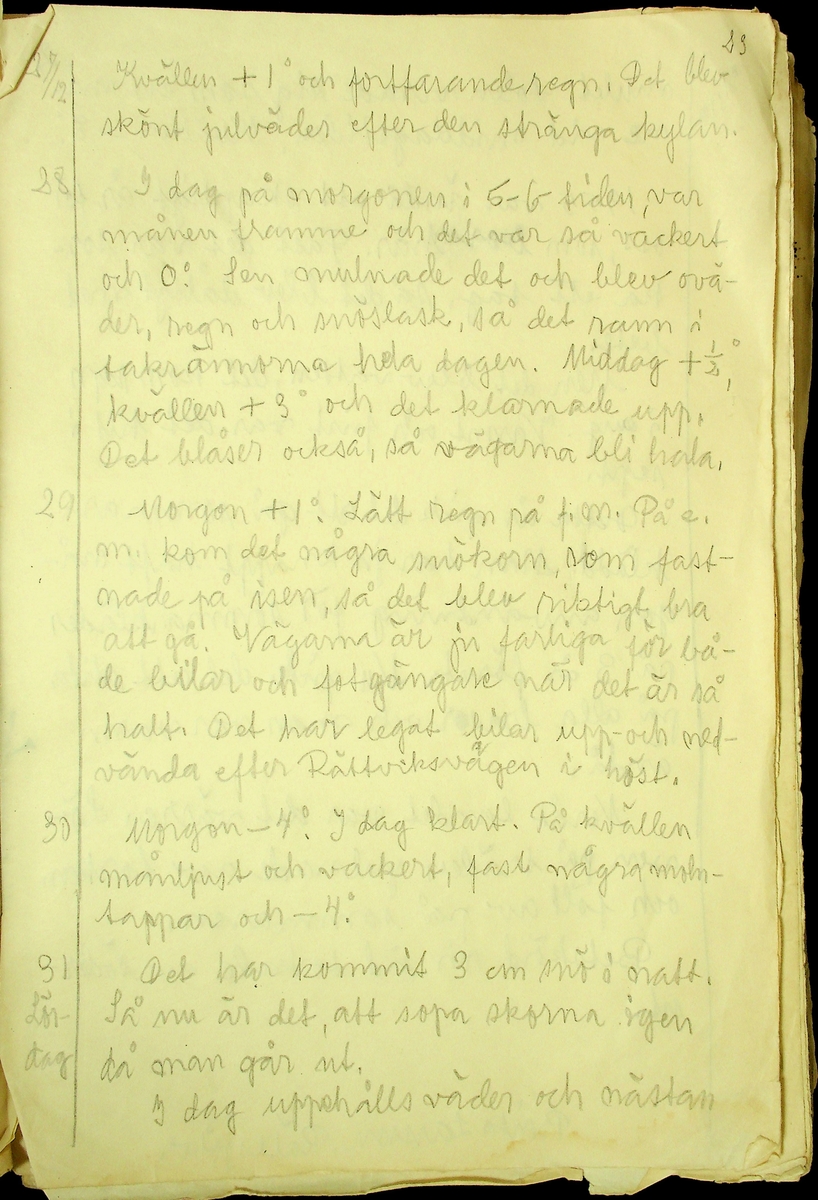 23
27/12 Kvällen +1° och fortfarande regn. Det blev
skönt julväder efter den stränga kylan.
28 I dag på morgonen i 5-6 tiden, var
månen framme och det var så vackert
och 0°. Sen mulnade det och blev ovä-
der, regn och snöslask, så det rann i
takrännorna hela dagen. Middag +½°,
kvällen +3° och det klarnade upp.
Det blåser också, så vägarna bli hala.
29 Morgon +1°. Lätt regn på f.m. På e.
m. kom det några snökorn, som fast-
nade på isen, så det blev riktigt bra
att gå. Vägarna är ju farliga för bå-
de bilar och fotgängare när det är så
halt. Det har legat bilar upp- och ned-
vända efter Rättviksvägen i höst.
30 Morgon -4°. I dag klart. På kvällen
månljust och vackert, fast några moln-
tappar och -4°.
31 Det har kommit 3 cm snö i natt.
Lör- Så nu är det, att sopa skorna igen
dag då man går ut.
I dag uppehålls väder och nästan